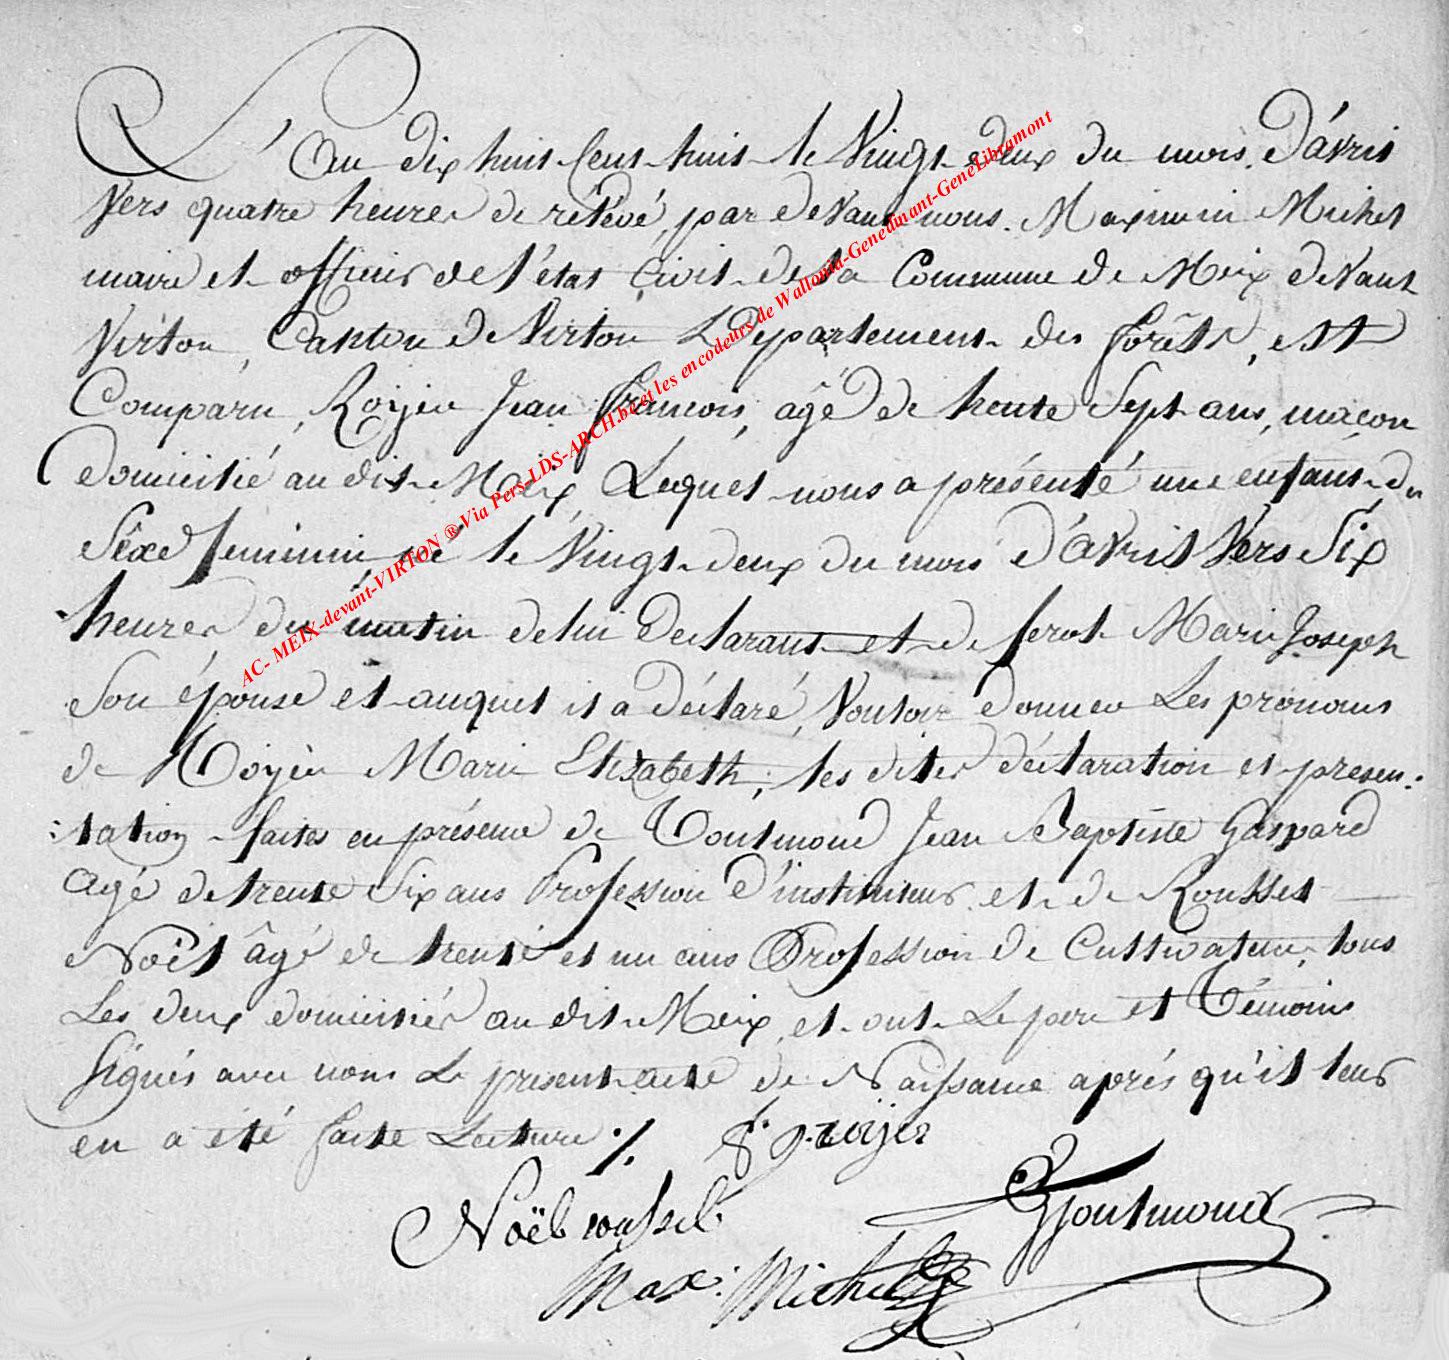 L'An dix huit Cent huit le Vingt deux du mois D'avril
Vers quatre heures de rélévé, par devant nous. Maximin Michel
maire et officier de l'état Civil de la Commune de Meix devant
Virton, Canton de Virton Département des forêts, est
Comparu, Royer Jean françois, âgé de trente Sept ans, maçon
domicilié au dit Meix, Lequel nous a présenté une enfant du
Sêxe feminin né le Vingt deux du mois d'avril Vers Six
heures du matin de lui Déclarant et de ferot Marie Joseph
Son épouse et auquel il a Déclaré, Vouloir donner Les prénoms
de Royer Marie Elizabeth; les dites déclaration et présen-
:tation faites en présence de Toutmond Jean Baptiste Gaspard
Agé de trente Six ans Profession d'instituteur et de Roussel
Noël âgé de trente et un ans Profession de Cultivateur, tous
Les deux domiciliés au dit Meix, et ont Le père et Témoins
Signés avec nous Le présent acte de Naissance après qu'il leur
en a été faite Lecture ./. J. f. roijer
Noël roussel GToutmond
Max: Michel
AC- MEIX-devant-VIRTON ® Via Pers-LDS-ARCH.be et les encodeurs de Wallonia-Genedinant-GeneLibramont